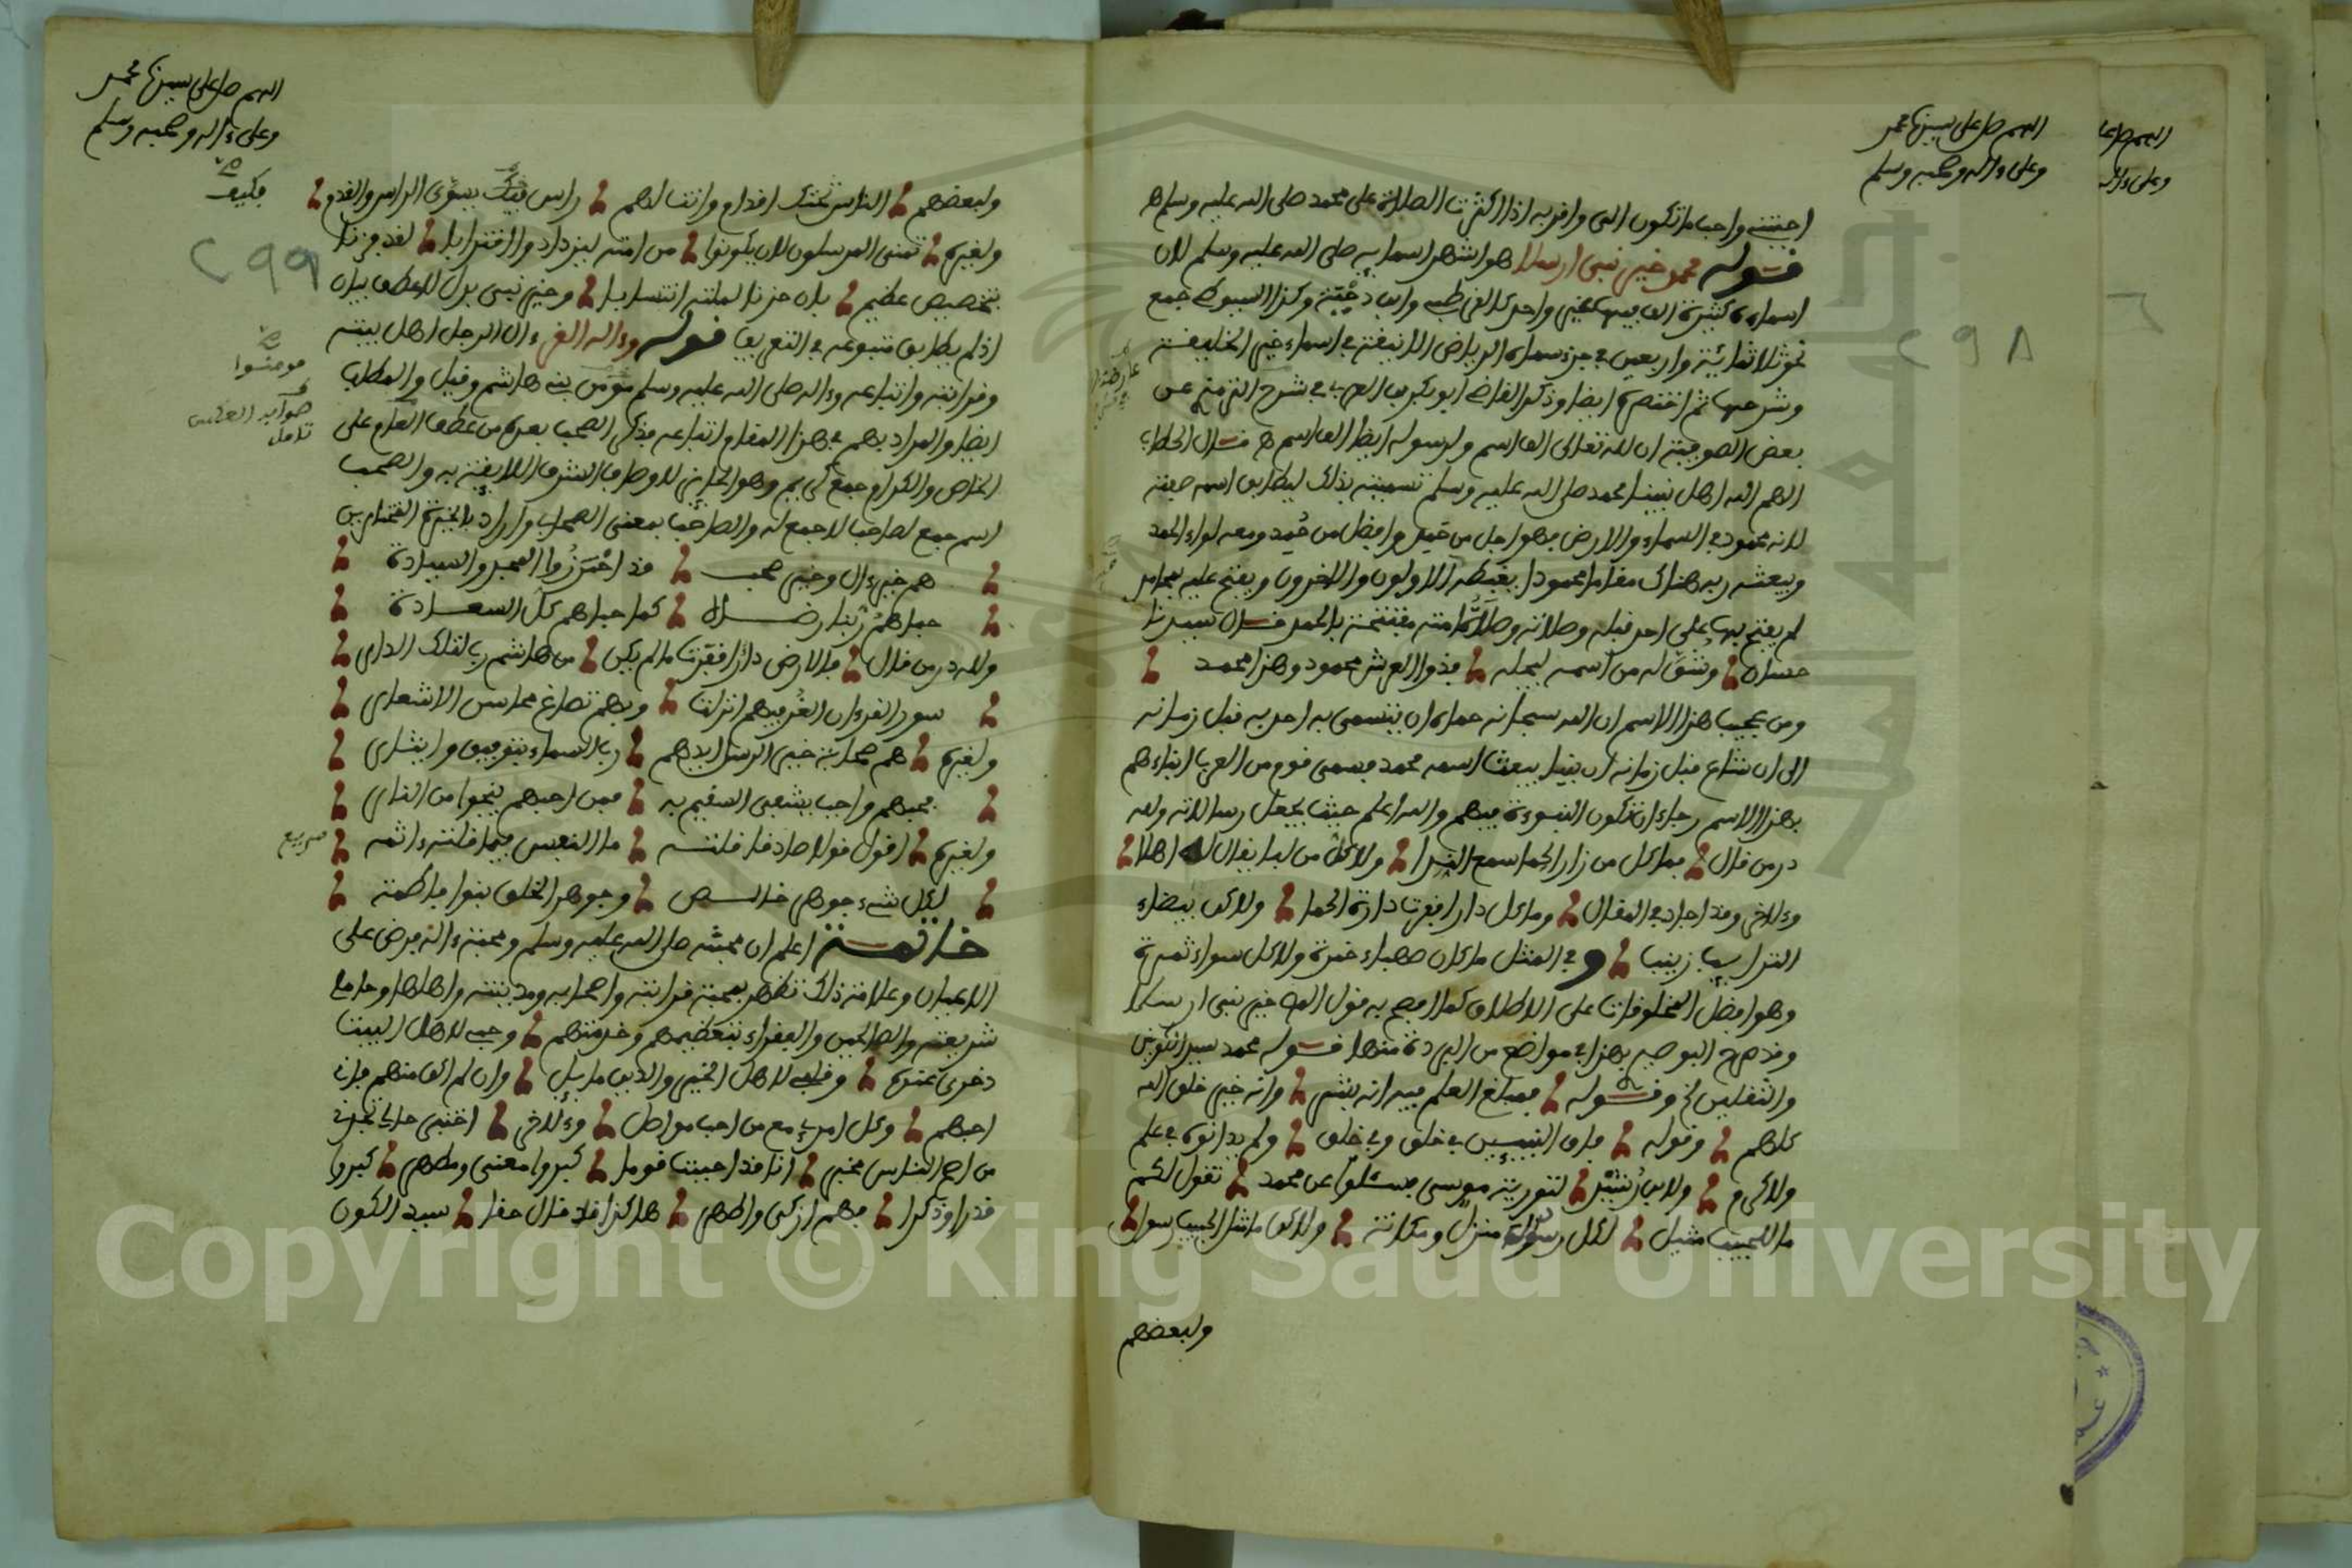 اللهم صل على سيدنا محمد
وعلى ءاله وصحبه وسلم
احببته واحب ما تكون الى واقربه اذا اكثرت الصلاة على محمد صلى الله عليه وسلم اه
قوله محمد خير نبى ارسلا هو اشهر اسمايه صلى الله عليه وسلم لان
اسماءه كثيرة الف فيها غير واحد كالغرطبى وابن دحية وكذا السيوطى جمع
نحو ثلاثمائية واربعين فى جزء سماه الرياض الانيفة فى اسماء خير الخليفة
وشرحها ثم اختصره ايضا وذكر القاضى ابو بكر بن العربى فى شرح الترمذى عن
بعض الصوفية ان لله تعالى الف اسم ولرسوله ايضا الف اسم اه قال الحطاب
الهم الله اهل نبينا محمد صلى الله عليه وسلم تسميته بذلك ليطابق اسمه صفته
لانه محمود فى السماء والارض فهو اجل من حمد وافضل من حمد ومعه لواء الحمد
ويبعثه ربه هناك مقاما محمودا يغبطه الاولون والاخرون ويفتح عليه بمحامد
لم يفتح بها على احد قبله وصلاته وصلاة امته مفتتحة بالحمد قال سيدنا
حسان وشق له من اسمه ليجله فذوا العرش محمود وهذا محمد
ومن عجيب هذا الاسم ان الله سبحانه حماه ان يتسمى به احد به قبل زمانه
الى ان شاع قبل زمانه ان نبيا يبعث اسمه محمد فسمى قوم من العرب ابناءهم
بهذا الاسم رجاء ان تكون النبوءة فيهم والله اعلم حيث يجعل رسالاته ولله
در من قال فما كل من زار الحما سمع الندا ولا كل من لبا يقال له اهلا
وءلاخر وقد اجاد فى المقال وما كل دار اقفرت دارة الحما ولا كل بيضاء
الترايب زينب وفى المثل ما كل صهباء خمرة ولا كل سوداء تمرة
وهو افضل المخلوقات على الاطلاق كما افصح به قول الله خير نبى ارسلا
وقد صرح البوصيرى بهذا فى مواضع من البردة منها قوله محمد سيد الكونين
والثقلين الخ وقوله فمبلغ العلم فيه انه بشر وانه خير خلق الله
كلهم وقوله فاق النبيين فى خلق وفى خلق ولم يدانوه فى علم
ولا كرم ولابن لتورية موسى فسئلوا عن محمد تقول لكم
ما للحبيب مثيل لكل رسول منزل ومكانة ولاكن ما مثل الحبيب رسول
ولبعضهم
اللهم صل على سيدنا محمد
وعلى ءاله وصحبه وسلم
ولبعضهم الناس تحتك اقدام وانت لهم راس فكيف يسوى الراس والقدم
ولغيره تمنى المرسلون لان يكونوا من امته ليزدادوا اقترابا لقد فزنا
بتخصيص عظيم بان حزنا لملته انتسابا وخير نبى بدل لا عطف بيان
اذ لم يطابق متبوعه فى التعريف قوله وءاله الغر ءال الرجل اهل بيته
وقرابته واتباعه وءاله صلى الله عليه وسلم مومنوا بنى هاشم وقيل والمطلب
ايضا والمراد بهم فى هذا المقام اتباعه فذكر الصحب بعده من عطف العام على
الخاص والكرام جمع كريم وهو الحايز للاوصاف الشرف اللايقة به والصحب
اسم جمع لصاحب لا جمع له والصاحب بمعنى الصحابى
هم خير ءال وخير صحب قد احرزوا المجد والسيادة
حباهم ربنا رضاه كما حباهم كل السعادة
ولله در من قال
سور القرءان الغر فيهم انزلت وبهم تصاغ محاسن الاشعار
ولغيره هم صحابة خير الرسل ايدهم رب السماء بتوفيق وايثار
محبهم واجب يشفى السقيم به فمن احبهم ينجوا من النار
ولغيره اقول قولا صادقا قلته ما النفس فيما قلته ءاثمه
لكل شىء جوهر خالص وجوهر الخلق بنوا فاطمه
خاتمة اعلم ان محبته صلى الله عليه وسلم ومحبة ءاله فرض على
الاعيان وعلامة ذلك تظهر بمحبة قرابته واصحابه ومدينته واهلها وحامل
شريعته والصالحين والفقراء بتعظيمهم وخدمتهم وحبى لاهل البيت
ذخرى عنده وقلبى لاهل الخير والدين مايل وان لم اكن منهم فانى
احبهم وكل امرىء مع من احب مواصل وءلاخر اختبر حالى تجدنى
من اصح الناس مخبر انا قد احببت قوما كبروا معنى ومظهر كبروا
قدرا وذكرا فهم ازكى واطهر هاكذا قد قال حقا سيد الكون